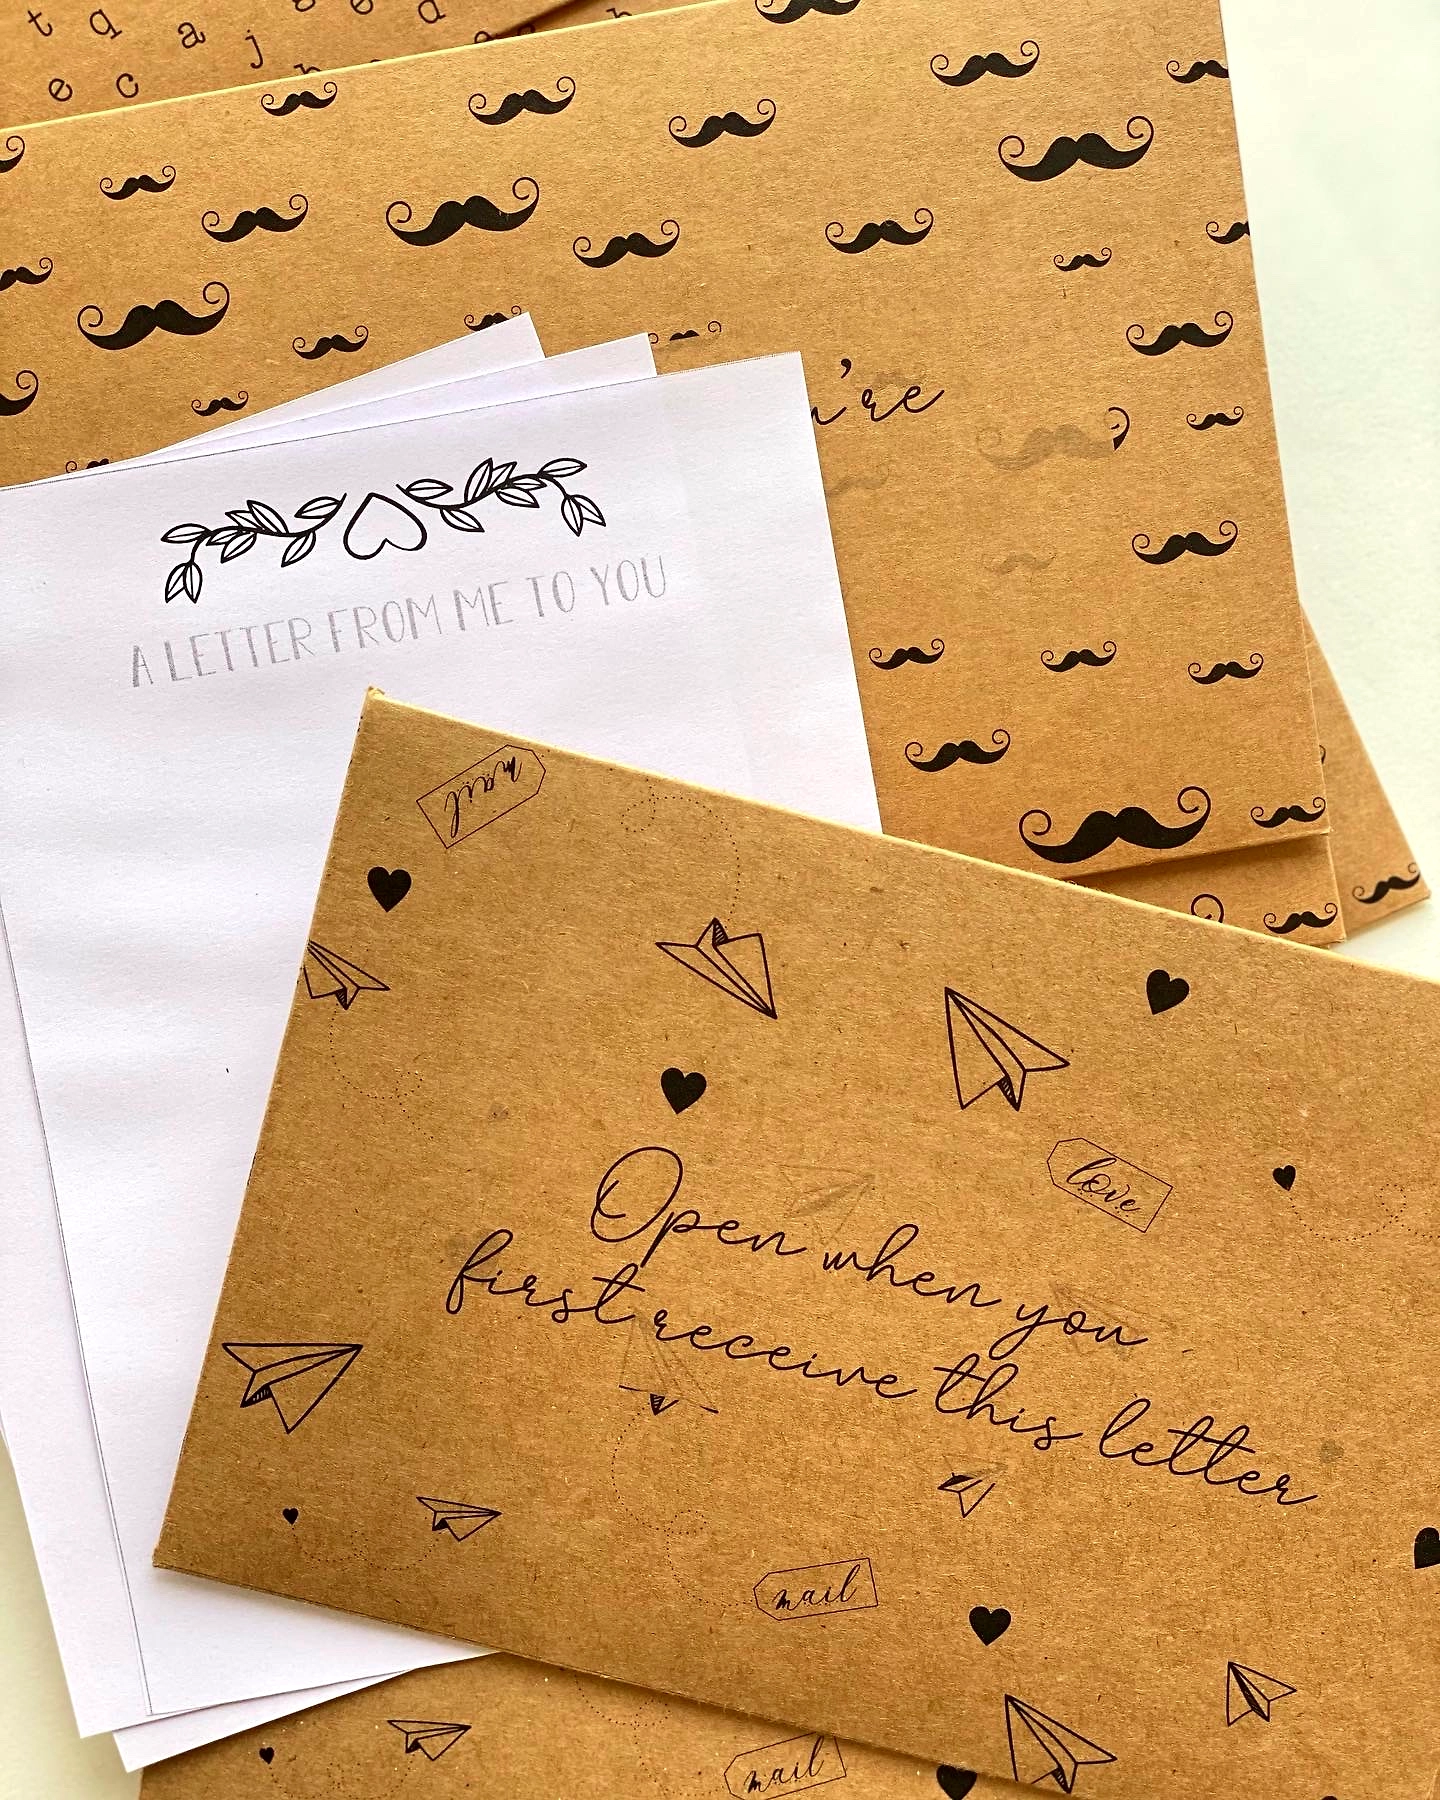 t q a j d
e c
're
A LETTER FROM ME TO YOU
mail
love
Open when you
first receive this letter
mail
mail